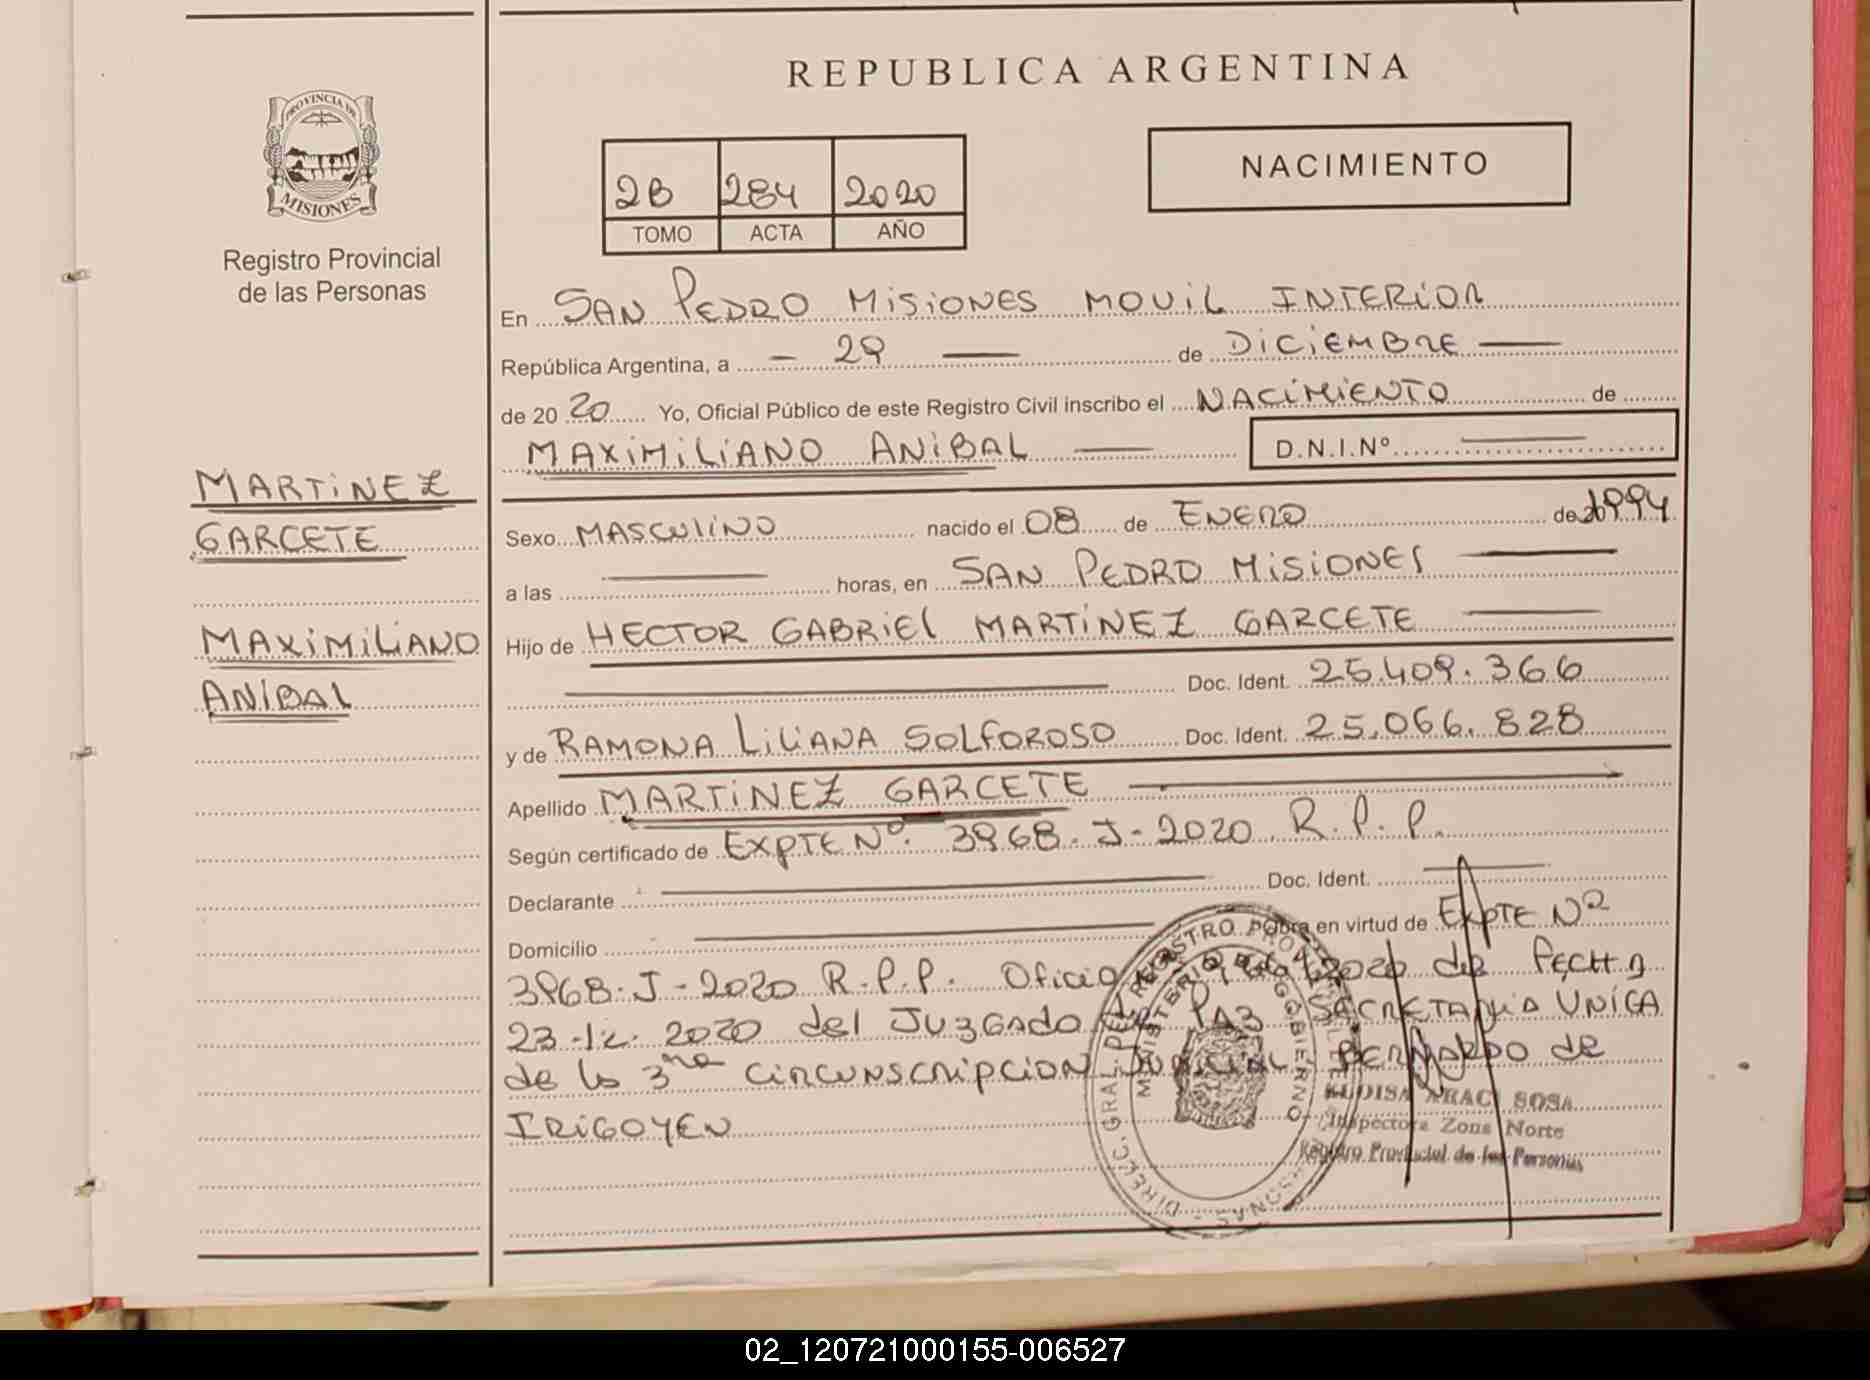 REPUBLICA ARGENTINA
PROVINCIA DE
MISIONES
Registro Provincial
de las Personas
NACIMIENTO
2B 284 2020
TOMO ACTA AÑO
En SAN PEDRO MISIONES MOVIL INTERIOR
República Argentina, a - 29 — de DICIEMBRE —
de 20 20 Yo, Oficial Público de este Registro Civil inscribo el NACIMIENTO de
MAXIMILIANO ANIBAL — D.N.I.Nº —
MARTINEZ
GARCETE
MAXIMILIANO
ANIBAL
Sexo MASCULINO nacido el 08 de ENERO de 1994
a las — horas, en SAN PEDRO MISIONES —
Hijo de HECTOR GABRIEL MARTINEZ GARCETE —
— Doc. Ident. 25.409.366
y de RAMONA LILIANA SOLFOROSO Doc. Ident. 25.066.828
Apellido MARTINEZ GARCETE —
Según certificado de EXPTE Nº 3968-J-2020 R.P.P.
Declarante — Doc. Ident. —
Domicilio — Obra en virtud de EXPTE Nº
3968-J-2020 R.P.P. Oficio 2020 de FECHA
23-12-2020 del JUZGADO de PAZ SECRETARIA UNICA
de la 3ra CIRCUNSCRIPCION JUDICIAL BERNARDO de
IRIGOYEN
DIREC. GRAL. DEL REGISTRO PROVINCIAL DE LAS PERSONAS
MINISTERIO DE GOBIERNO
ELOISA ARACI SOSA
Inspectora Zona Norte
Registro Provincial de las Personas
02_120721000155-006527